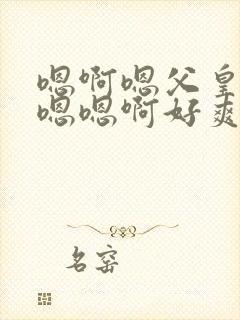 嗯啊嗯父皇
嗯嗯啊好爽
名窑